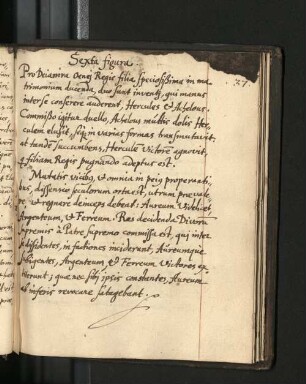 Sexta figura.
27.
Pro Deianira Oenej Regis filia speciosissima in ma-
trimonium ducenda, duo sunt inventj, qui manus
inter se conserere auderent, Hercules et Achelous.
Commisso igitur duello, Achelous multis dolis Her-
culem elusit, seq3 in varias formas transmutavit,
at tandē succumbens, Hercule Victorē agnovit,
q filiam Regis pugnando adeptus est.
Mutatis vicibus, et omnia in peius properanti-
bus, dissensio seculorum orta est, utrum præcede-
re, et regnare deinceps debeat: Aureum Videlicet
Argenteum, et Ferreum. Res decidenda Divorū
supremis à Patre supremo commissa est, qui inter
se dissidentes, in factiones inciderunt, Aureumque
negligentes, Argenteum et Ferreum Victores
; quæ nec sibj ipsis constantes, Aureum
ab inferis revocare satagebant.